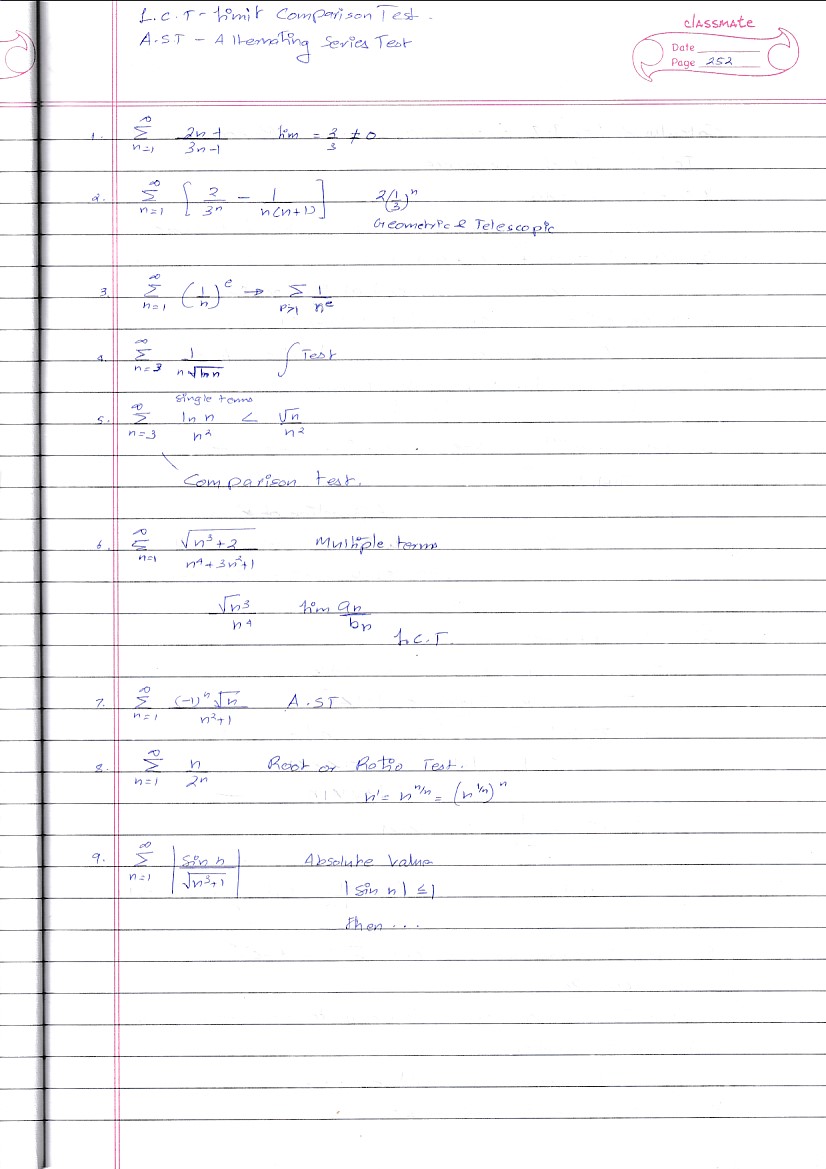 L.C.T - Limit Comparison Test.
A.ST - Alternating Series Test
classmate
Date
Page 252
1. ∞∑n=1 2n+1/3n-1 lim = 2/3 ≠ 0
2. ∞∑n=1 [2/3ⁿ - 1/n(n+1)] 2(1/3)ⁿ
Geometric & Telescopic
3. ∞∑n=1 (1/n)ᵉ → ∑p>1 1/nᵉ
4. ∞∑n=3 1/n√ln n ∫ Test
single terms
5. ∞∑n=3 ln n/n² < √n/n²
Comparison test.
6. ∞∑n=1 √n³+2/n⁴+3n²+1 Multiple terms
√n³/n⁴ lim an/bn
L.C.T.
7. ∞∑n=1 (-1)ⁿ√n/n²+1 A.ST
8. ∞∑n=1 n/2ⁿ Root or Ratio Test.
n¹ = nⁿ/ⁿ = (n¹/ⁿ)ⁿ
9. ∞∑n=1 |Sin n/√n³+1| Absolute Value
|Sin n| ≤ 1
then ...